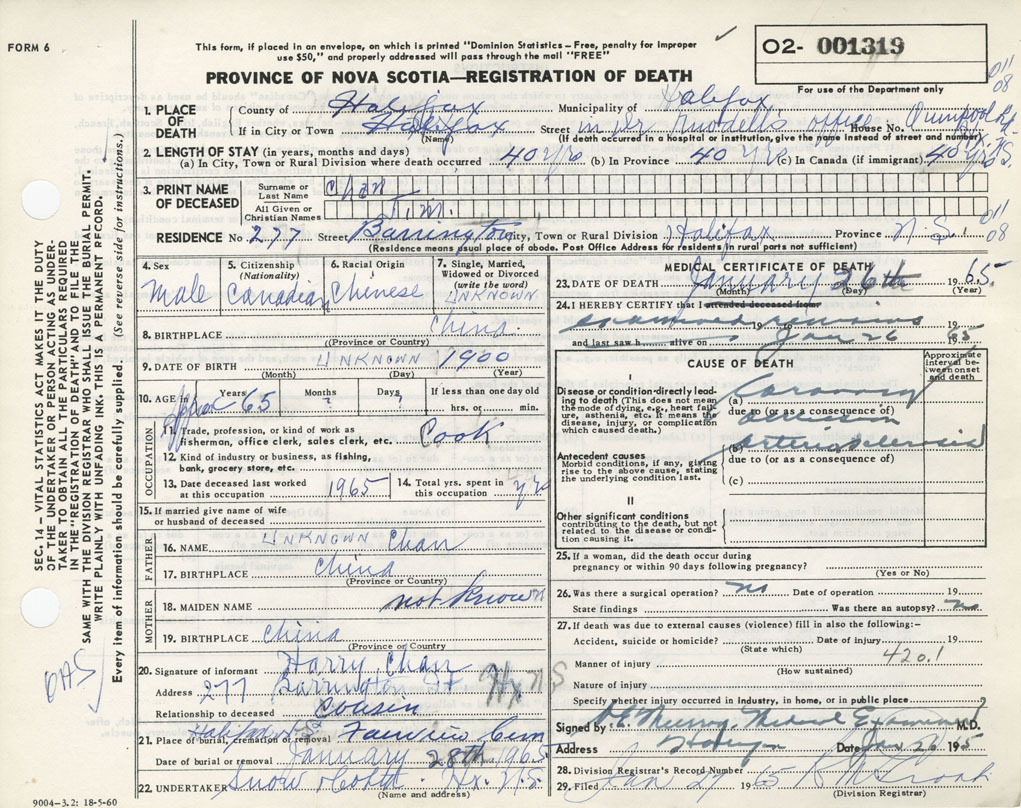 FORM 6
This form, if placed in an envelope, on which is printed "Dominion Statistics – Free, penalty for improper
use $50," and properly addressed will pass through the mail "FREE"
PROVINCE OF NOVA SCOTIA—REGISTRATION OF DEATH
O2- 001319
For use of the Department only
011
08
1. PLACE OF DEATH
County of Halifax Municipality of Halifax
If in City or Town Halifax Street in Dr office House No. Quinpool Rd.
(Name) (If death occurred in a hospital or institution, give the name instead of street and number)
2. LENGTH OF STAY (in years, months and days)
(a) In City, Town or Rural Division where death occurred 40 yrs (b) In Province 40 yrs (c) In Canada (if immigrant) 40 yrs
3. PRINT NAME OF DECEASED
Surname or Last Name Chan
All Given or Christian Names T.m.
RESIDENCE No. 277 Street Barrington City, Town or Rural Division Halifax Province N.S.
011
08
(Residence means usual place of abode. Post Office Address for residents in rural parts not sufficient)
4. Sex Male
5. Citizenship (Nationality) Canadian
6. Racial Origin Chinese
7. Single, Married, Widowed or Divorced (write the word) UNKNOWN
8. BIRTHPLACE China
(Province or Country)
9. DATE OF BIRTH UNKNOWN 1900
(Month) (Day) (Year)
10. AGE in Years 65 Months ? Days ? If less than one day old
hrs. or min.
OCCUPATION
11. Trade, profession, or kind of work as
fisherman, office clerk, sales clerk, etc. Cook
12. Kind of industry or business, as fishing,
bank, grocery store, etc.
13. Date deceased last worked at this occupation 1965
14. Total yrs. spent in this occupation yrs
15. If married give name of wife
or husband of deceased
FATHER
16. NAME UNKNOWN Chan
17. BIRTHPLACE China
(Province or Country)
MOTHER
18. MAIDEN NAME not known
19. BIRTHPLACE China
(Province or Country)
20. Signature of informant Harry Chan
Address 277 Barrington St Hx NS
Relationship to deceased Cousin
21. Place of burial, cremation or removal Fairview Cem
Date of burial or removal January 28th 1965
22. UNDERTAKER Snow Hx. N.S.
(Name and address)
9004-3.2: 18-5-60
MEDICAL CERTIFICATE OF DEATH
23. DATE OF DEATH January 26th 1965
(Month) (Day) (Year)
24. I HEREBY CERTIFY that I attended deceased from
examined remains 19 to 19
and last saw h alive on Jan 26 1965
CAUSE OF DEATH
Approximate interval between onset and death
I
Disease or condition directly leading to death (This does not mean the mode of dying, e.g., heart failure, asthenia, etc. It means the disease, injury, or complication which caused death.)
(a) Coronary
due to (or as a consequence of)
Antecedent causes
Morbid conditions, if any, giving rise to the above cause, stating the underlying condition last.
(b) arteriosclerosis
due to (or as a consequence of)
(c)
II
Other significant conditions
contributing to the death, but not related to the disease or condition causing it.
25. If a woman, did the death occur during
pregnancy or within 90 days following pregnancy?
(Yes or No)
26. Was there a surgical operation? no Date of operation 19
State findings Was there an autopsy? no
27. If death was due to external causes (violence) fill in also the following:-
Accident, suicide or homicide? Date of injury 19
(State which)
420.1
Manner of injury
(How sustained)
Nature of injury
Specify whether injury occurred in industry, in home, or in public place
Signed by Murray Medical Examiner M.D.
Address Halifax Date Jan 26 1965
28. Division Registrar's Record Number
29. Filed Jan 29 1965
(Division Registrar)
SEC. 14 – VITAL STATISTICS ACT MAKES IT THE DUTY
OF THE UNDERTAKER OR PERSON ACTING AS UNDER-
TAKER TO OBTAIN ALL THE PARTICULARS REQUIRED
IN THE "REGISTRATION OF DEATH" AND TO FILE THE
SAME WITH THE DIVISION REGISTRAR WHO SHALL ISSUE THE BURIAL PERMIT.
WRITE PLAINLY WITH UNFADING INK. THIS IS A PERMANENT RECORD.
Every item of information should be carefully supplied. (See reverse side for instructions.)